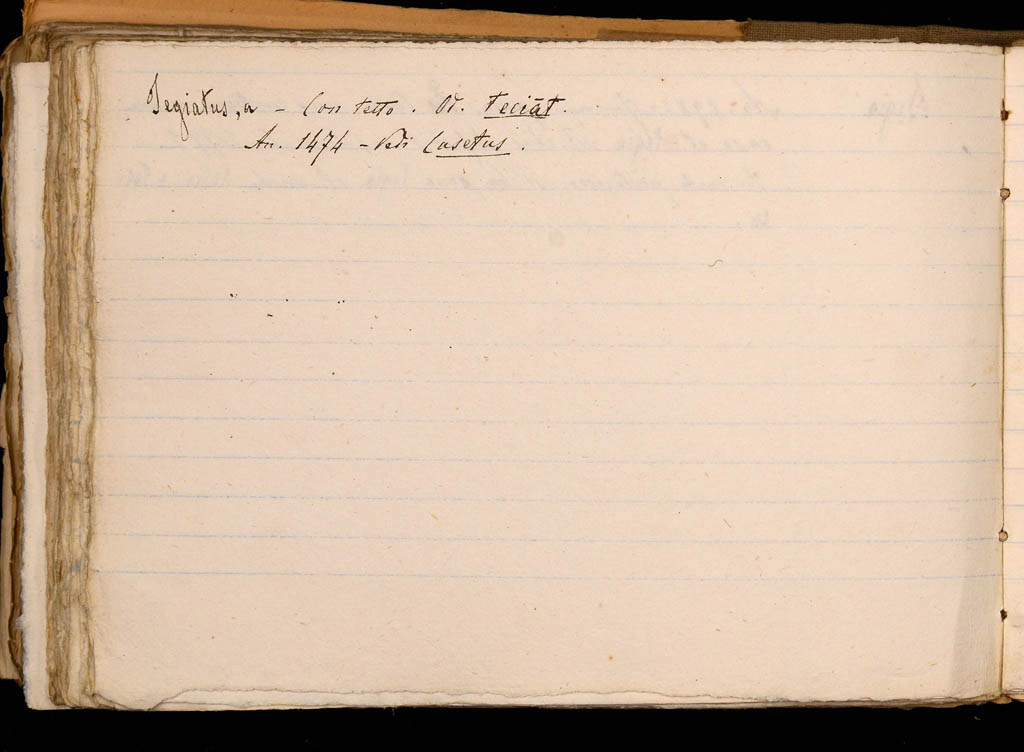 Tegiatus, a - Con tetto. Od. teciāt.
An. 1474 - Vedi Casetus.